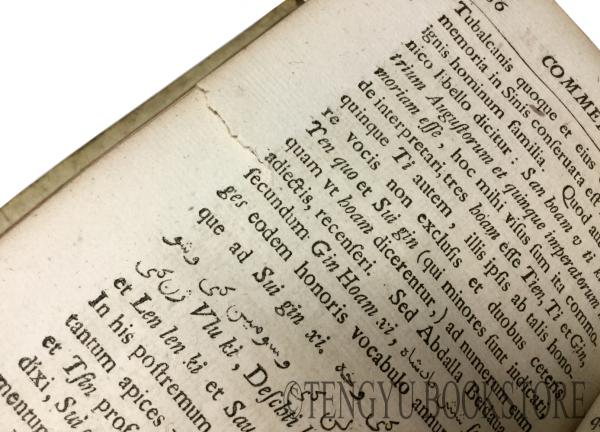 COMME
Tubalcanis quoque et eius
memoria in Sinis conſeruata eſt
ignis hominum familia. Quod au
nico libello dicitur: San hoam v ti
trium Auguſtorum et quinque imperatorum
moriam eſſe, hoc mihi viſus ſum ita commo-
de interpretari, tres hoam eſſe Tien, Ti et Gin,
quinque Ti autem, illis ipſis ab talis hono-
re vocis non excluſis et duobus ceteris
Yen quo et Sui gin (qui minores ſunt iudicati,
quam vt hoam dicerentur,) ad numerum eum
adiectis, recenſeri. Sed Abdalla
ſecundum Gin Hoam xi,
ges eodem honoris vocabulo annu
que ad Sui gin xi.
وسومين كى وشو
ژن كى Vlu ki,
et Len len ki et Sau
In his poſtremum
tantum apices
et Tſin prof
dixi, Sui
mentum
©TENGYU BOOKSTORE